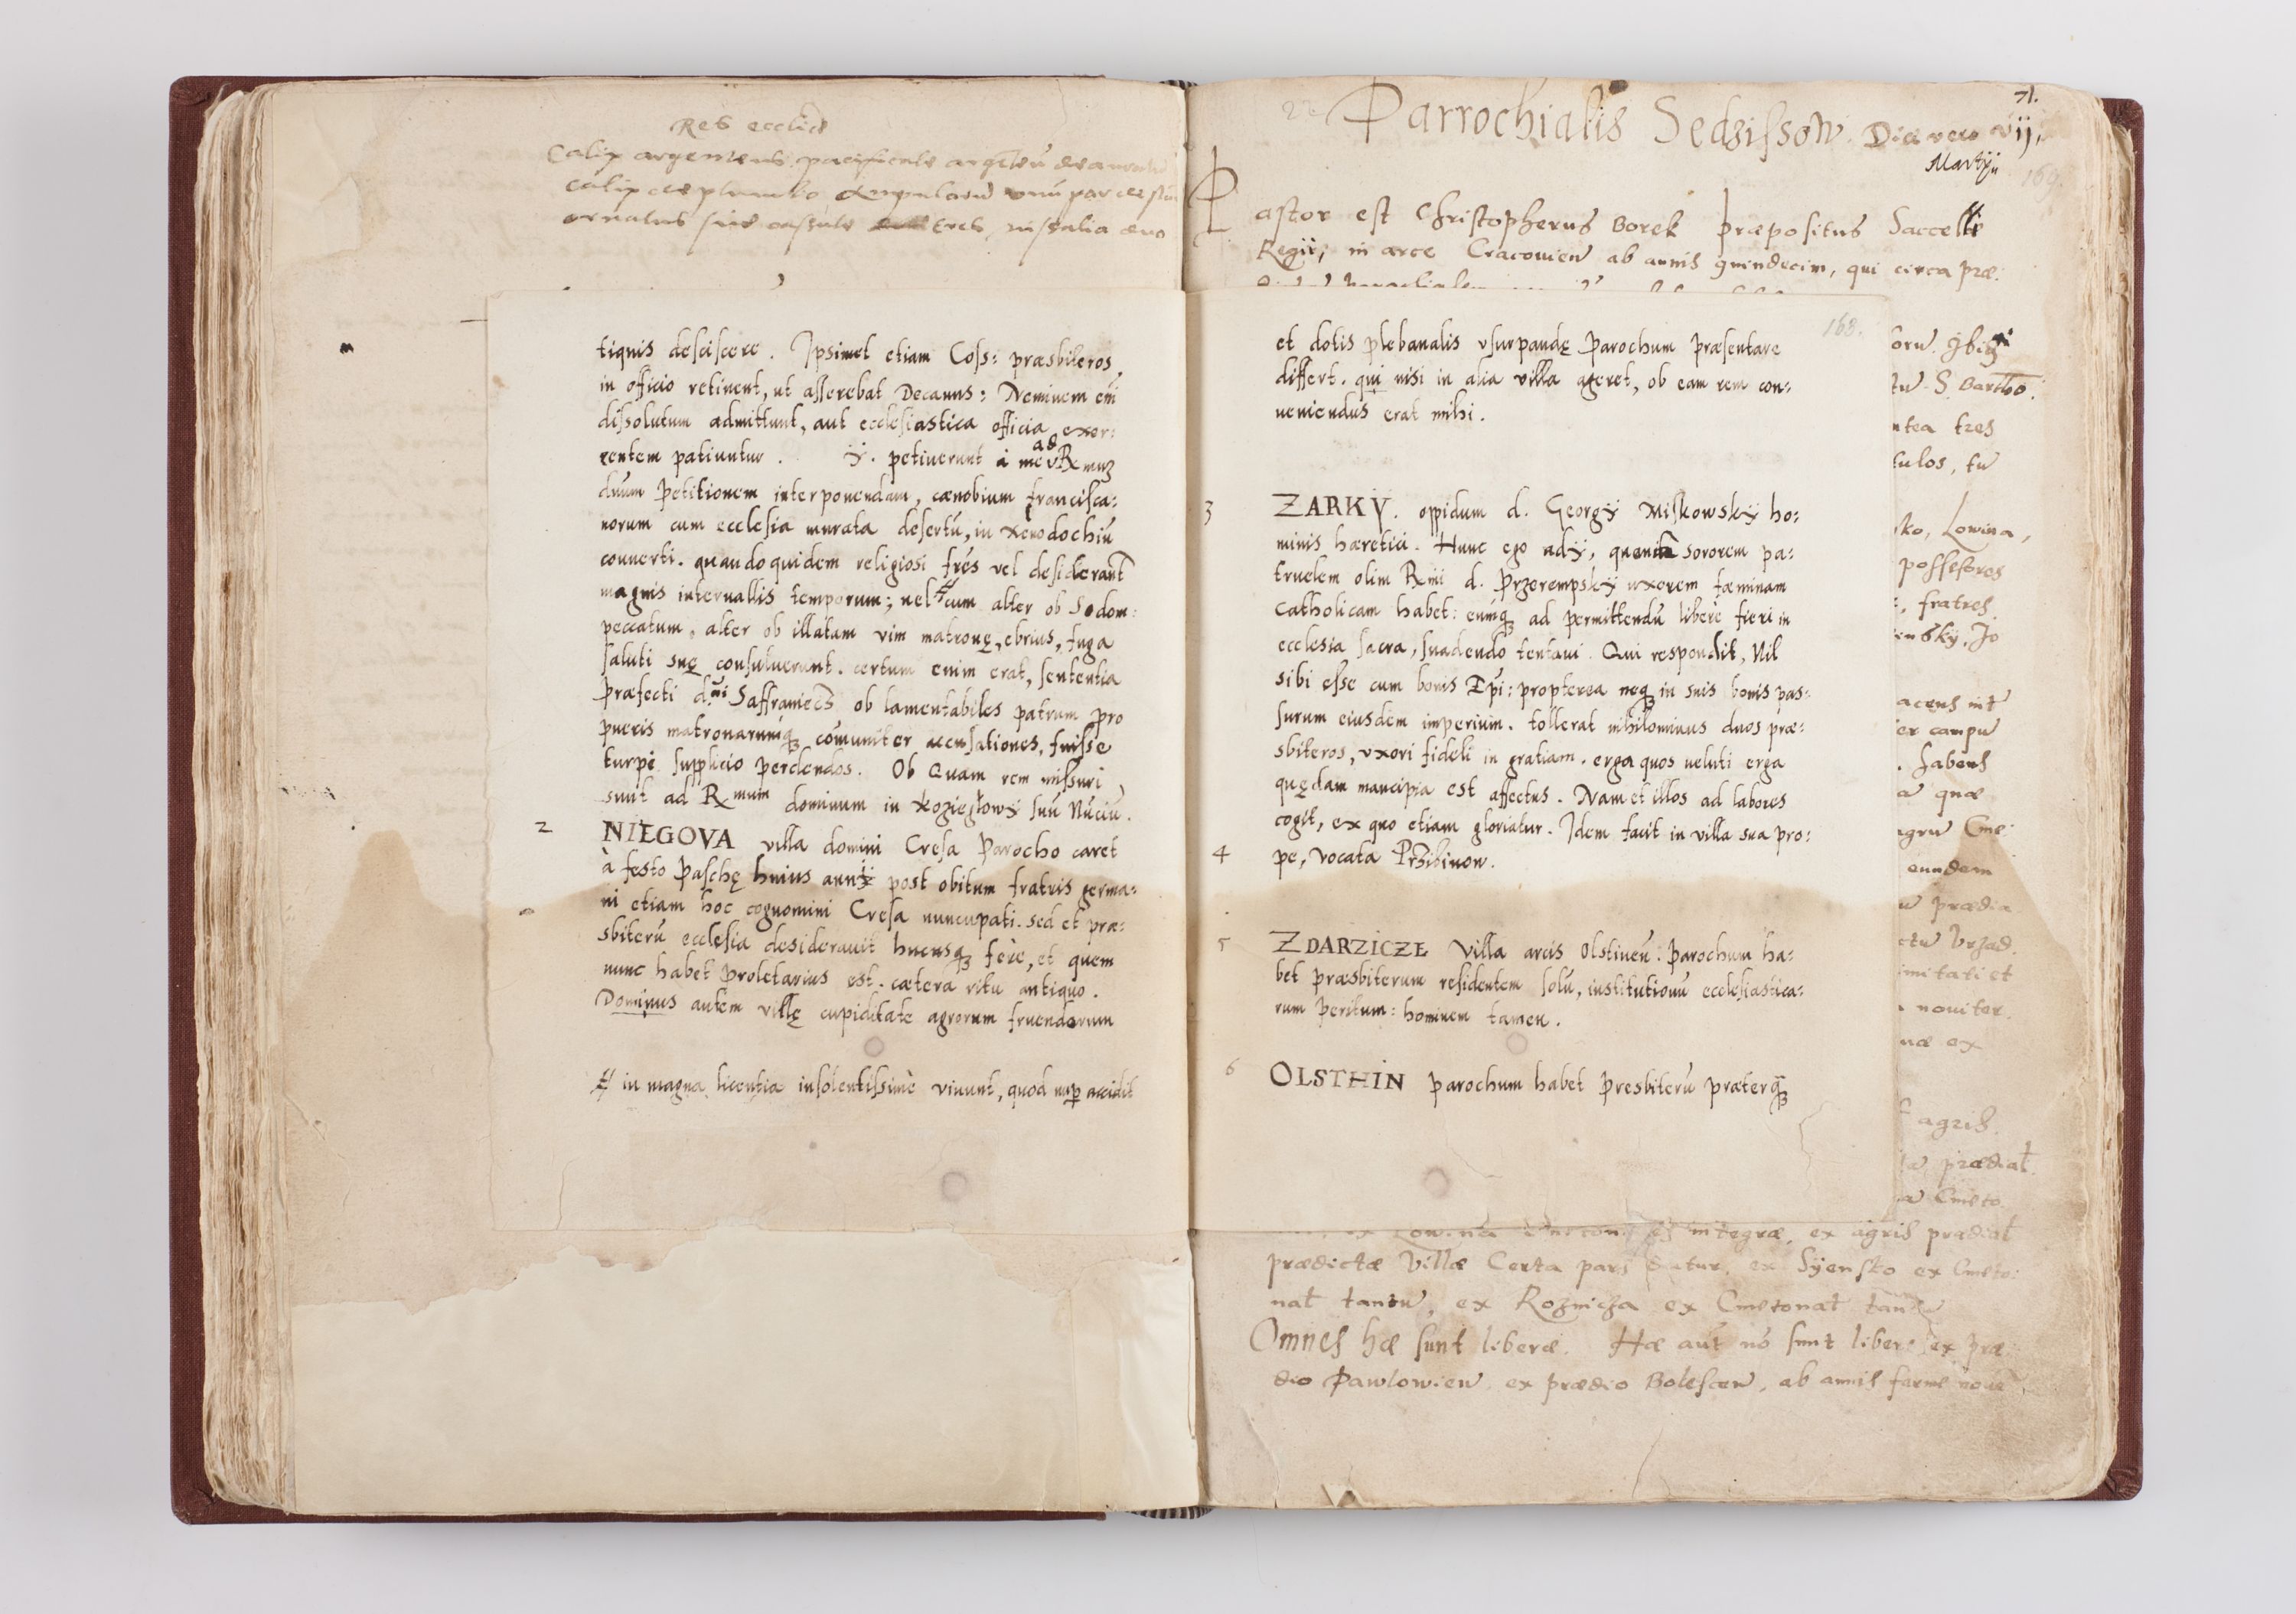 Res eccliæ
Calix argenteus, pacificale argẽteũ deauratũ
Calix de plumbo, Ampularũ unũ par de stã
ornatus sive casulæ tres, missalia duo
tiquis desciscere. Ipsimet etiam Coss: præsbiteros
in officio retinent, ut asserebat Decanus: Neminem em̃
dissolutum admittunt, aut ecclesiastica officia exer:
centem patiuntur. ij. petiuerunt à me ad Rmuʒ
dnũm petitionem interponendam, cænobium francisca:
norum cum ecclesia murata desertũ, in Xenodochiũ
conuerti. quandoquidem religiosi frẽs vel desiderant
magnis interuallis temporum; uel cum alter ob Sodom:
peccatum, alter ob illatam vim matronę, ebrius, fuga
saluti suę consuluerunt. certum enim erat, sententia
præfecti d.ni Saffraniecz ob lamentabiles patrum pro
pueris matronarumqʒ cõmuniter accusationes, fuisse
turpi supplicio perdendos. Ob Quam rem missuri
sunt ad Rmum dominum in Koziegłowy suũ Nũciũ.
2 NIEGOVA villa domini Cresa Parocho caret
à festo Paschę huius anni post obitum fratris germa:
ni etiam hoc cognomini Cresa nuncupati. sed et præ:
sbiterũ ecclesia desiderauit hucusqʒ ferè, et quem
nunc habet proletarius est. cætera ritu antiquo.
Dominus autem villę cupiditate agrorum fruendorum
in magna licentia insolentissimè viuunt, quod nuꝑ accidit
71.
Parrochialis Sedzissow. Die vero vij,
Martij
169.
Pastor est Christopherus Borek præpositus Saccelli
Regij, in arce Cracouien̄ ab annis quindecim, qui circa præ:
168.
et dotis plebanalis vsurpandę Parochum præsentare
differt. qui nisi in alia villa ageret, ob eam rem con:
ueniendus erat mihi.
3 ZARKY. oppidum d. Georgy Miskowsky ho:
minis hæretici. Hunc ego adij, sororem pa:
truelem olim Rmi d. Przerempsky uxorem fæminam
Catholicam habet: eumqʒ ad permittendũ liberè fieri in
ecclesia sacra, suadendo tentaui. Qui respondit, Nil
sibi esse cum bonis Epi: propterea neqʒ in suis bonis pas:
surum eiusdem imperium. tollerat nihilominus duos præ:
sbiteros, vxori fideli in gratiam. erga quos ueluti erga
quędam mancipia est affectus. Nam et illos ad labores
cogit, ex quo etiam gloriatur. Idem facit in villa sua pro:
4 pe, vocata Przibinow.
5 ZDARZICZE Villa arcis Olstinen̄: Parochum ha:
bet præsbiterum residentem solũ, institutionũ ecclesiastica:
rum peritum: hominem tamen.
6 OLSTHIN parochum habet Presbiterũ præterqʒ
orũ.
tũ S. Bartho:
ntea tres
tulos, tũ
sko, Lowina,
possessores
fratres
insky, Jo
acens int̄
er campũ
. habens
a quæ
agrũ Cme:
eundem
ũ prædia
ctũ Vrzad.
imitati et
noviter.
næ ex
agris.
prædiat̄
Cmeto
integræ, ex agris prædiat̄
prædictæ Villæ Certa pars datur, ex Syensko ex Cmeto:
nat̄ tantũ, ex Roznicza ex Cmetonat̄ tantũ
Omnes hæ sunt liberæ. Hæ aut̄ nõ sunt liberæ ex præ
dio Pawlowien̄, ex prædio Bolescen̄, ab annis ferme novẽ